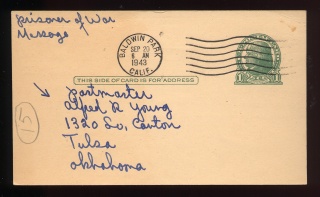 Prisoner of War
Message
BALDWIN PARK
SEP 20
8 AM
1943
CALIF.
THIS SIDE OF CARD IS FOR ADDRESS
Postmaster
Alfred R Young
1320 So. Canton
Tulsa
Oklahoma
15